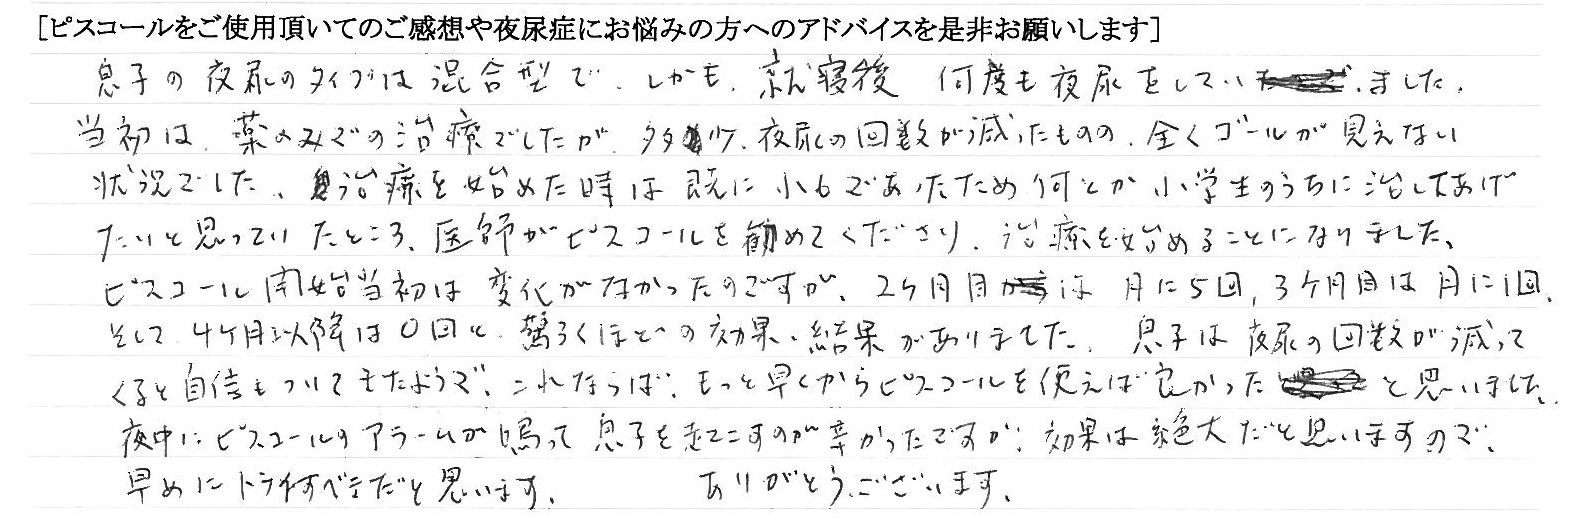 [ピスコールをご使用頂いてのご感想や夜尿症にお悩みの方へのアドバイスを是非お願いします]
息子の夜尿のタイプは混合型で、しかも、就寝後 何度も夜尿をしていました。
当初は、薬のみでの治療でしたが、多少、夜尿の回数が減ったものの、全くゴールが見えない
状況でした。治療を始めた時は既に小6であったため何とか小学生のうちに治してあげ
たいと思っていたところ、医師がピスコールを勧めてくださり、治療を始めることになりました。
ピスコール開始当初は変化がなかったのですが、2ヶ月目は月に5回、3ヶ月目は月に1回、
そして4ヶ月以降は0回と、驚ろくほどの効果、結果がありました。息子は夜尿の回数が減って
くると自信もついてきたようで、これならば、もっと早くからピスコールを使えば良かったと思いました。
夜中にピスコールのアラームが鳴って息子を起こすのが辛かったですが、効果は絶大だと思いますので、
早めにトライすべきだと思います。 ありがとうございます。